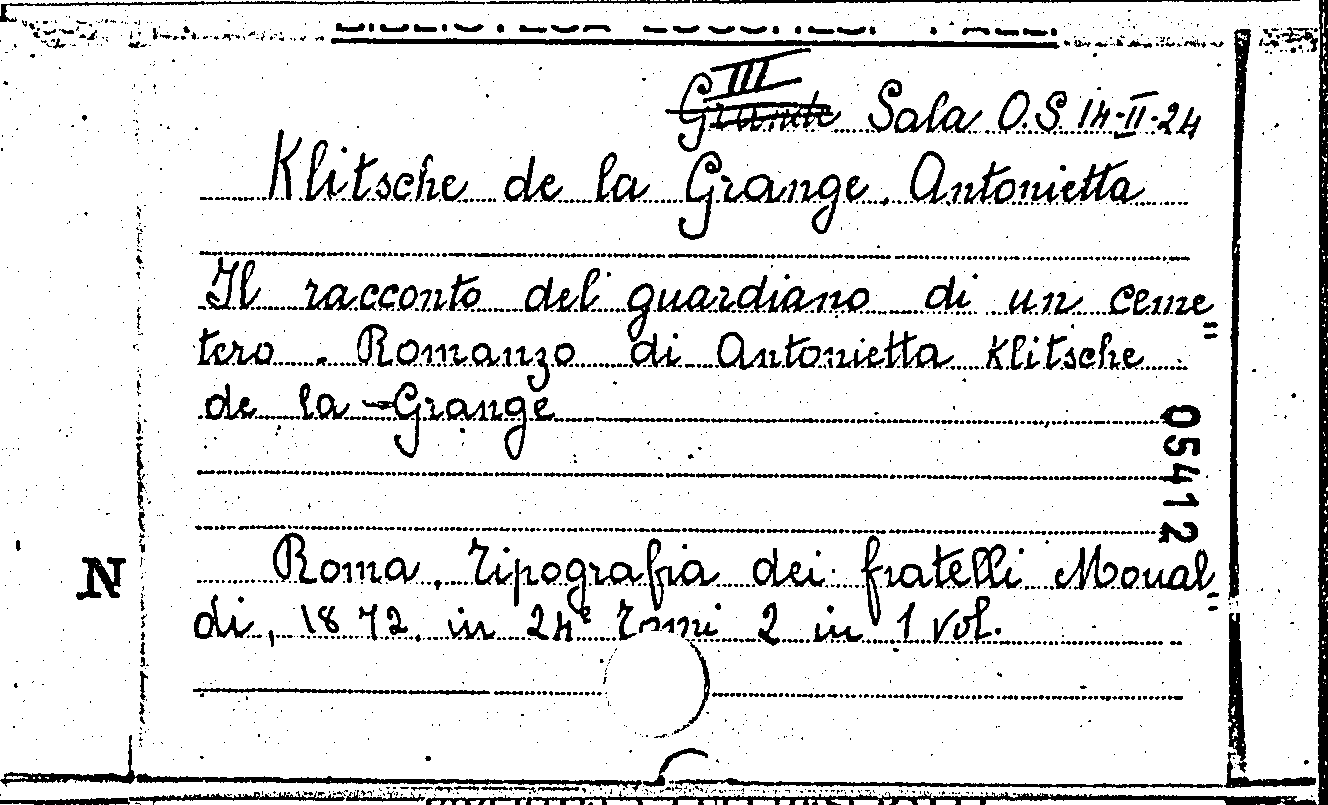 III
Grande Sala O.S. 14-II-24
Klitsche de la Grange, Antonietta
Il racconto del guardiano di un ceme=
tero. Romanzo di Antonietta Klitsche
de la Grange
05412
N
Roma, Tipografia dei fratelli Monal=
di, 1872, in 24° Tomi 2 in 1 vol.